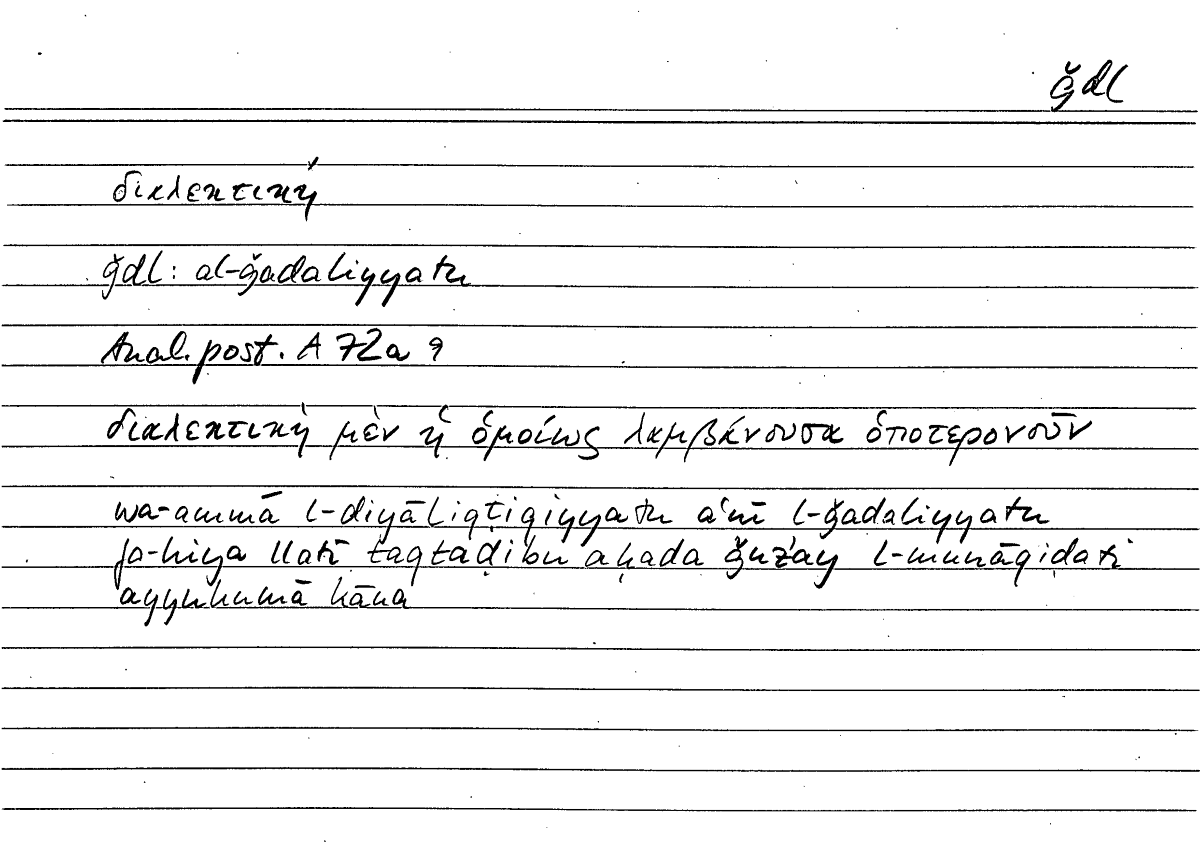 ǧdl
διαλεκτική
ǧdl: al-ǧadaliyyatu
Anal. post. A 72a 9
διαλεκτικὴ μὲν ἡ ὁμοίως λαμβάνουσα ὁποτερονοῦν
wa-ammā l-diyāliqṭiqiyyatu aʿnī l-ǧadaliyyatu
fa-hiya llatī taqtaḍibu aḥada ǧuzʾay l-munāqiḍati
ayyuhumā kāna